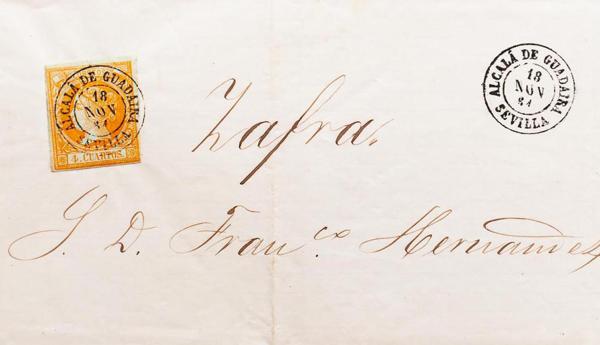 ALCALÁ DE GUADAIRA
18
NOV
61
SEVILLA
4. CUARTOS.
ALCALÁ DE GUADAIRA
18
NOV
61
SEVILLA
Zafra.
S. D. Fran.co Hernandez